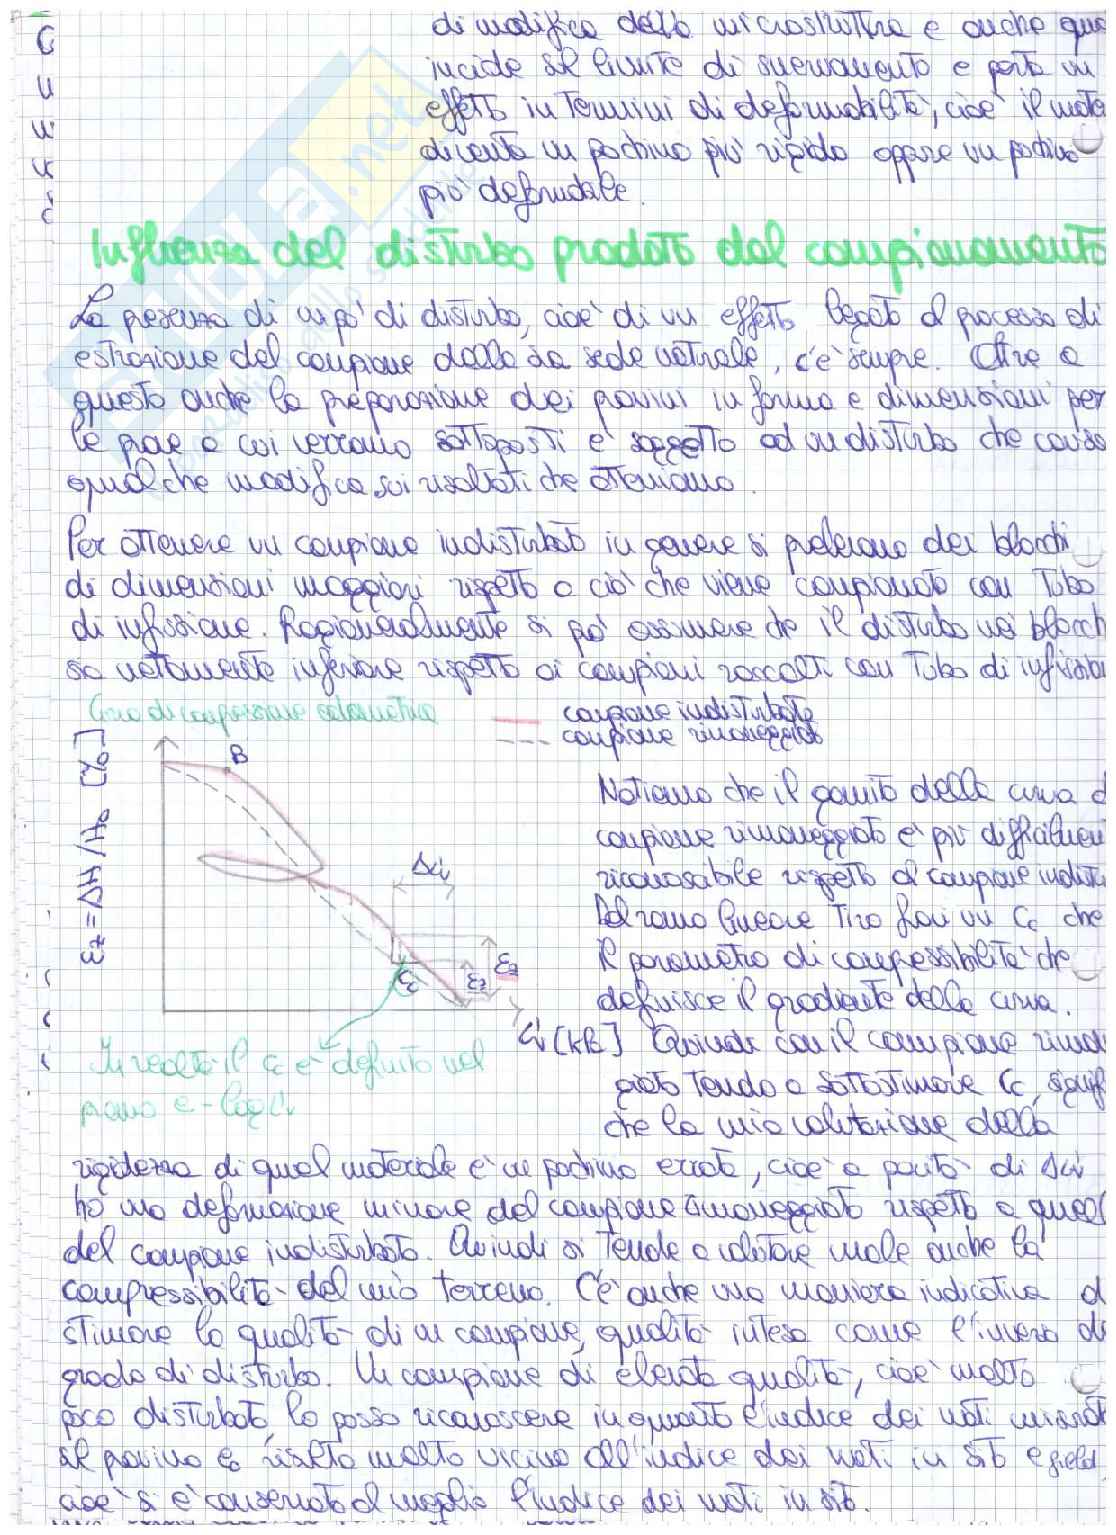 di modifica della microstruttura e anche ques
incide sul limite di snervamento e porta un
effetto in termini di deformabilità, cioè il mate
diventa un pochino più rigido oppure un pochino
più deformabile.
Influenza del disturbo prodotto dal campionamento
La presenza di un po' di disturbo, cioè di un effetto legato al processo di
estrazione del campione dalla sua sede naturale, c'è sempre. Oltre a
questo anche la preparazione dei provini in forma e dimensioni per
le prove a cui verranno sottoposti è soggetto ad un disturbo che causa
qualche modifica sui risultati che otteniamo.
Per ottenere un campione indisturbato in genere si prelevano dei blocchi
di dimensioni maggiori rispetto a ciò che viene campionato con tubo
di infissione. Ragionevolmente si può assumere che il disturbo nei blocch
sia nettamente inferiore rispetto ai campioni raccolti con tubo di infission
Curva di compressione edometrica
campione indisturbato
campione rimaneggiato
εz = ΔH/H₀ [%]
B
Δσ'v
Cc
εz
εz
σ'v [kPa]
Notiamo che il gomito della curva d
campione rimaneggiato è più difficilmen
riconoscibile rispetto al campione indistu
Dal ramo lineare tiro fuori un Cc che
il parametro di compressibilità che
definisce il gradiente della curva.
Quindi con il campione riman
giato tendo a sottostimare Cc, signif
che la mia valutazione della
In realtà il Cc è definito nel
piano e-logσ'v
rigidezza di quel materiale è un pochino errata, cioè a parità di Δσ'v
ho una deformazione minore del campione rimaneggiato rispetto a quell
del campione indisturbato. Quindi si tende a valutare male anche la
compressibilità del mio terreno. C'è anche una maniera indicativa d
stimare la qualità di un campione, qualità intesa come l'inverso de
grado di disturbo. Un campione di elevata qualità, cioè molto
poco disturbato, lo posso riconoscere in quanto l'indice dei vuoti misurat
sul provino e₀ risulta molto vicino all'indice dei vuoti in sito e field
cioè si è conservato al meglio l'indice dei vuoti in sito.